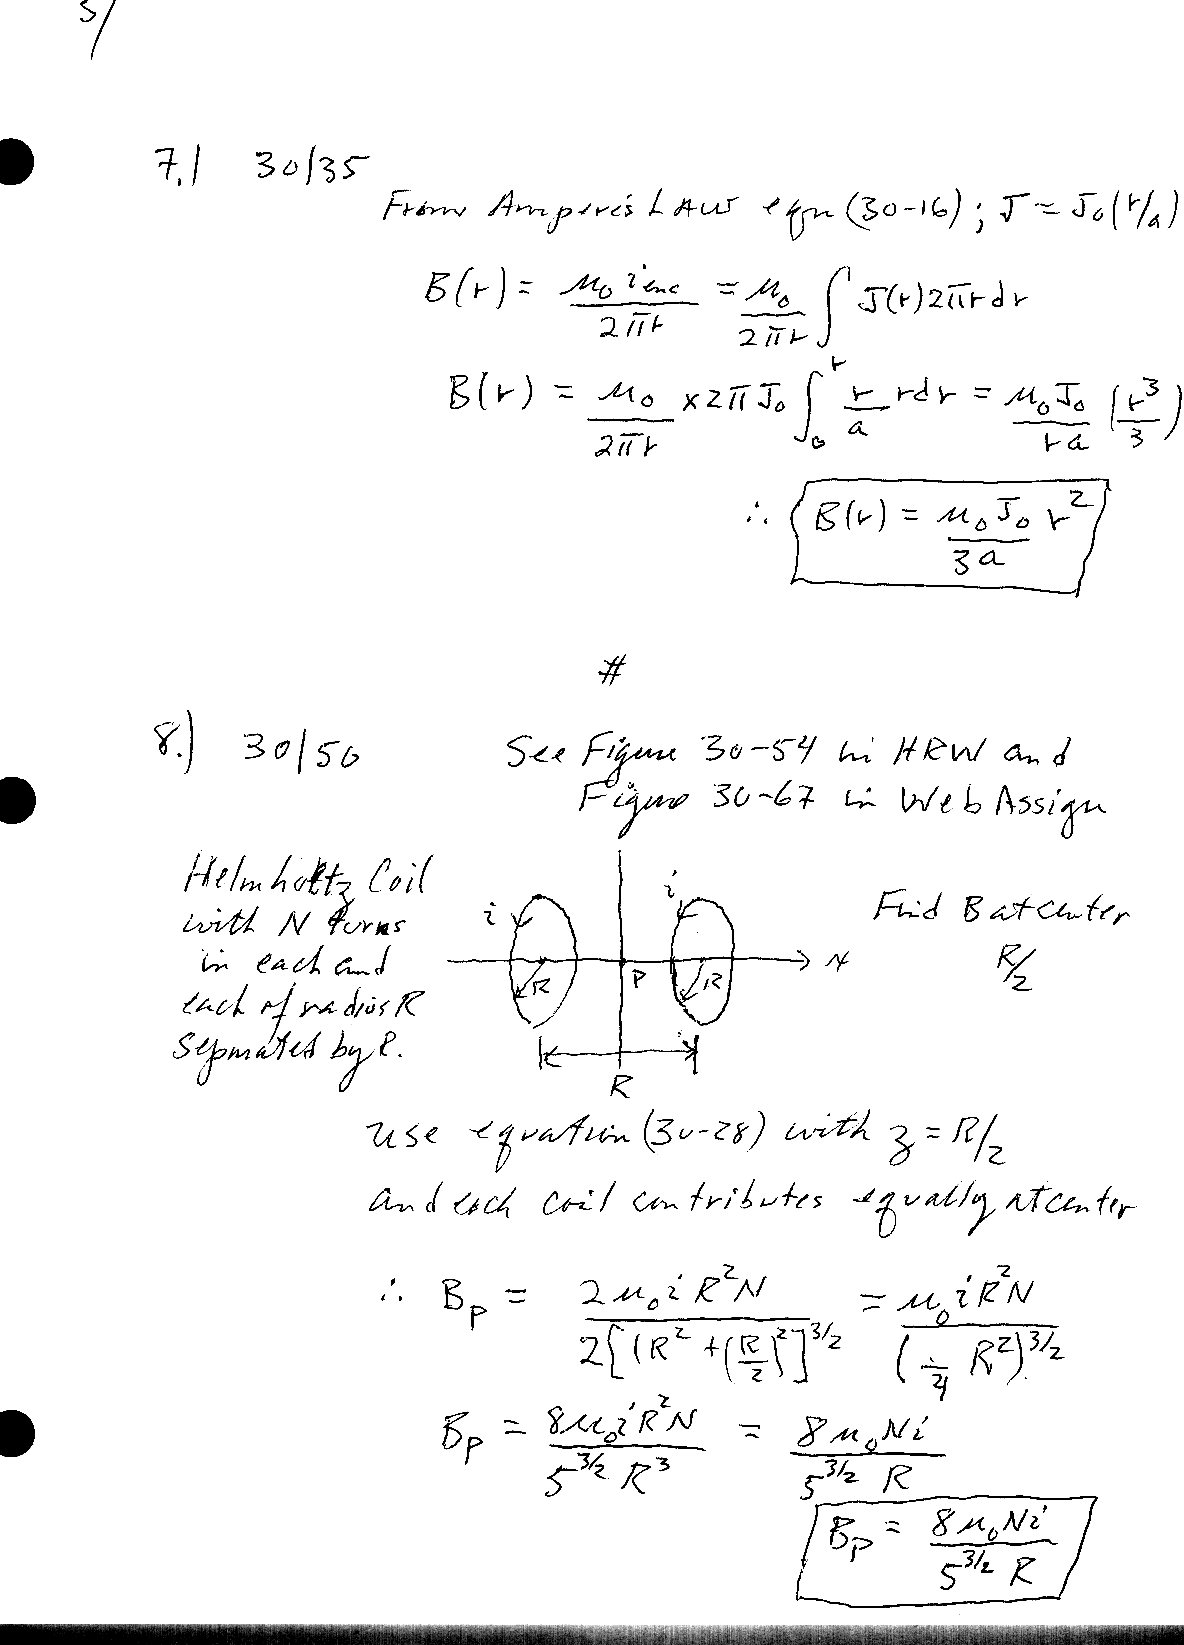 5/
7.) 30/35
From Ampere's LAW eqn (30-16); J = J₀(r/a)
B(r) = μ₀ i_enc / 2πr = μ₀ / 2πr ∫ J(r) 2πr dr
B(r) = μ₀ / 2πr × 2π J₀ ∫₀^r r/a r dr = μ₀ J₀ / ra (r³/3)
∴ B(r) = μ₀ J₀ / 3a r²
#
8.) 30/50 See Figure 30-54 in HRW and
Figure 30-67 in WebAssign
Helmholtz Coil
with N turns
in each and
each of radius R
separated by R.
i i
R P R x
R
Find B at center
R/2
use equation (30-28) with z = R/2
and each coil contributes equally at center
∴ B_p = 2μ₀ i R² N / 2[(R² + (R/2)²]^3/2 = μ₀ i R² N / ( /4 R²)^3/2
B_p = 8μ₀ i R² N / 5^3/2 R³ = 8μ₀ N i / 5^3/2 R
B_p = 8μ₀ N i / 5^3/2 R